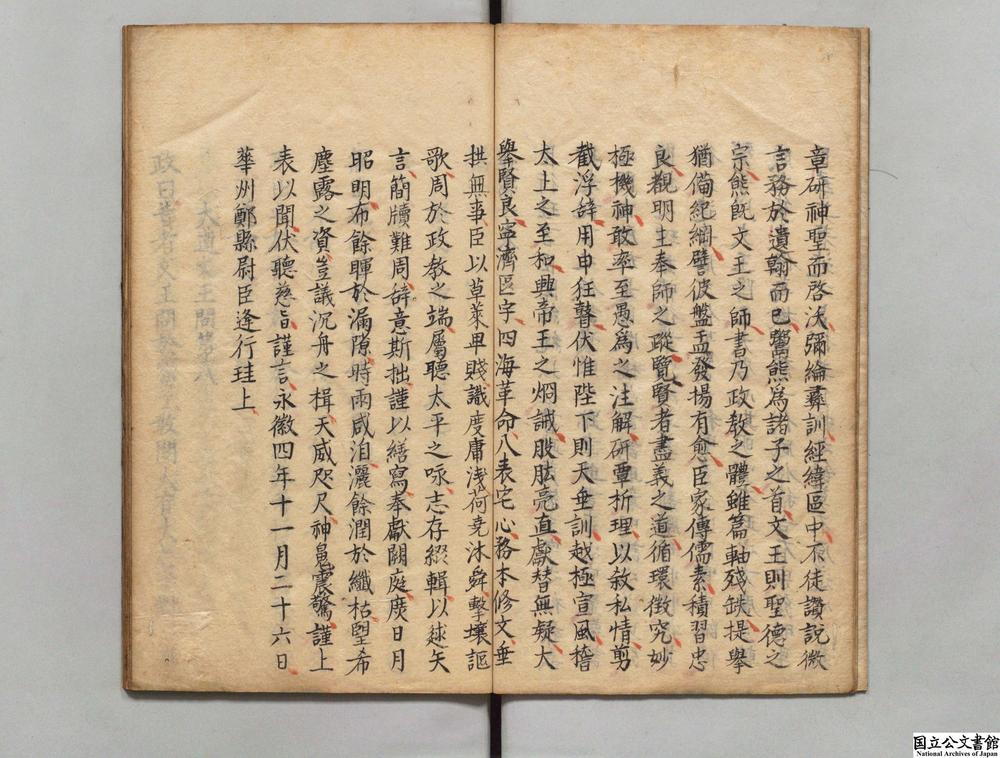 章研神聖而啓沃彌綸彞訓經緯區中不徒讚說微
言務於遺翰而已鬻熊爲諸子之首文王則聖德之
宗熊旣文王之師書乃政教之體雖篇軸殘缺提舉
猶備紀綱譬彼盤盂發揚有愈臣家傳儒素積習忠
良觀明主奉師之蹤覽賢者盡義之道循環徵究妙
極機神敢率至愚爲之注解研覃析理以敘私情剪
截浮辝用申狂瞽伏惟陛下則天垂訓越極宣風稽
太上之至和興帝王之烱誡股肱亮直獻替無疑大
舉賢良寍濟區宇四海革命八表宅心務本修文垂
拱無事臣以草萊卑賤識度庸淺荷堯沐舜擊壤謳
歌周於政教之端屬聽太平之咏志存綴輯以緎矢
言簡牘難周辝意斯拙謹以繕寫奉獻闕庭庻日月
昭明布餘暉於漏隙時雨咸洎灑餘潤於纖枯堲希
塵露之資豈議沉舟之楫天威咫尺神鬼震驚謹上
表以聞伏聽慈旨謹言永徽四年十一月二十六日
華州鄭縣尉臣逢行珪上
国立公文書館
National Archives of Japan